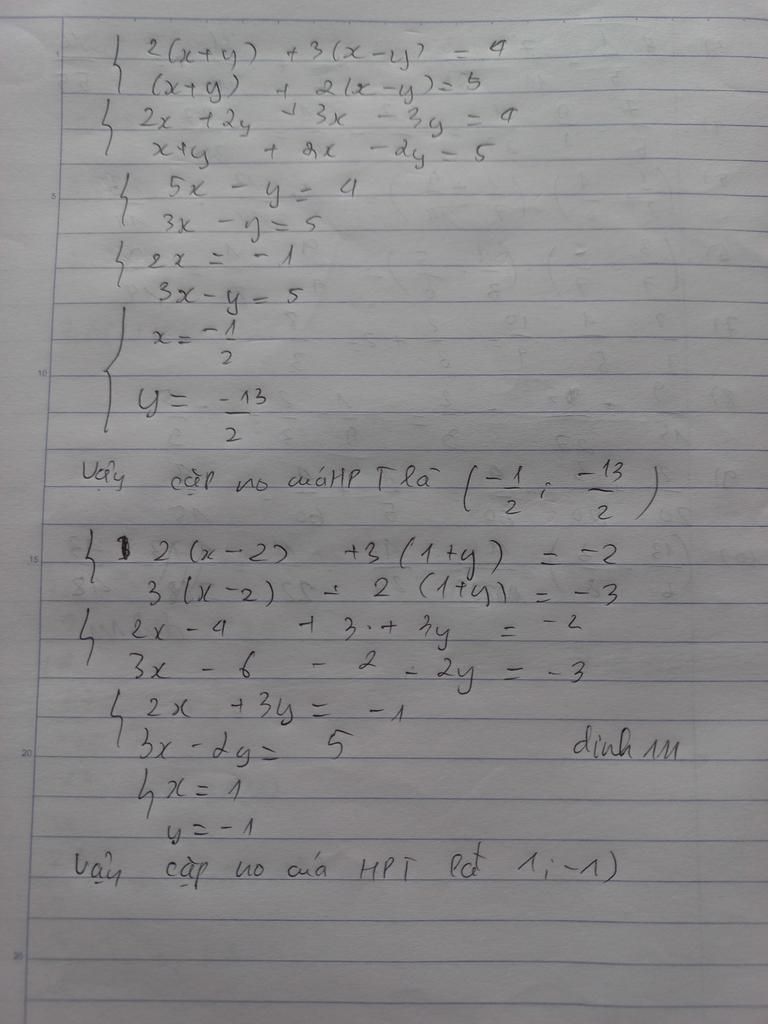 { 2(x+y) + 3(x-y) = 4
(x+y) + 2(x-y) = 5
{ 2x + 2y + 3x - 3y = 4
x+y + 2x - 2y = 5
{ 5x - y = 4
3x - y = 5
{ 2x = -1
3x - y = 5
{ x = -1/2
y = -13/2
Vậy cặp no của HPT là (-1/2; -13/2)
{ 2(x-2) +3(1+y) = -2
3(x-2) - 2(1+y) = -3
{ 2x - 4 + 3 + 3y = -2
3x - 6 - 2 - 2y = -3
{ 2x + 3y = -1
3x - 2y = 5
{ x = 1
y = -1
Vậy cặp no của HPT là 1; -1)